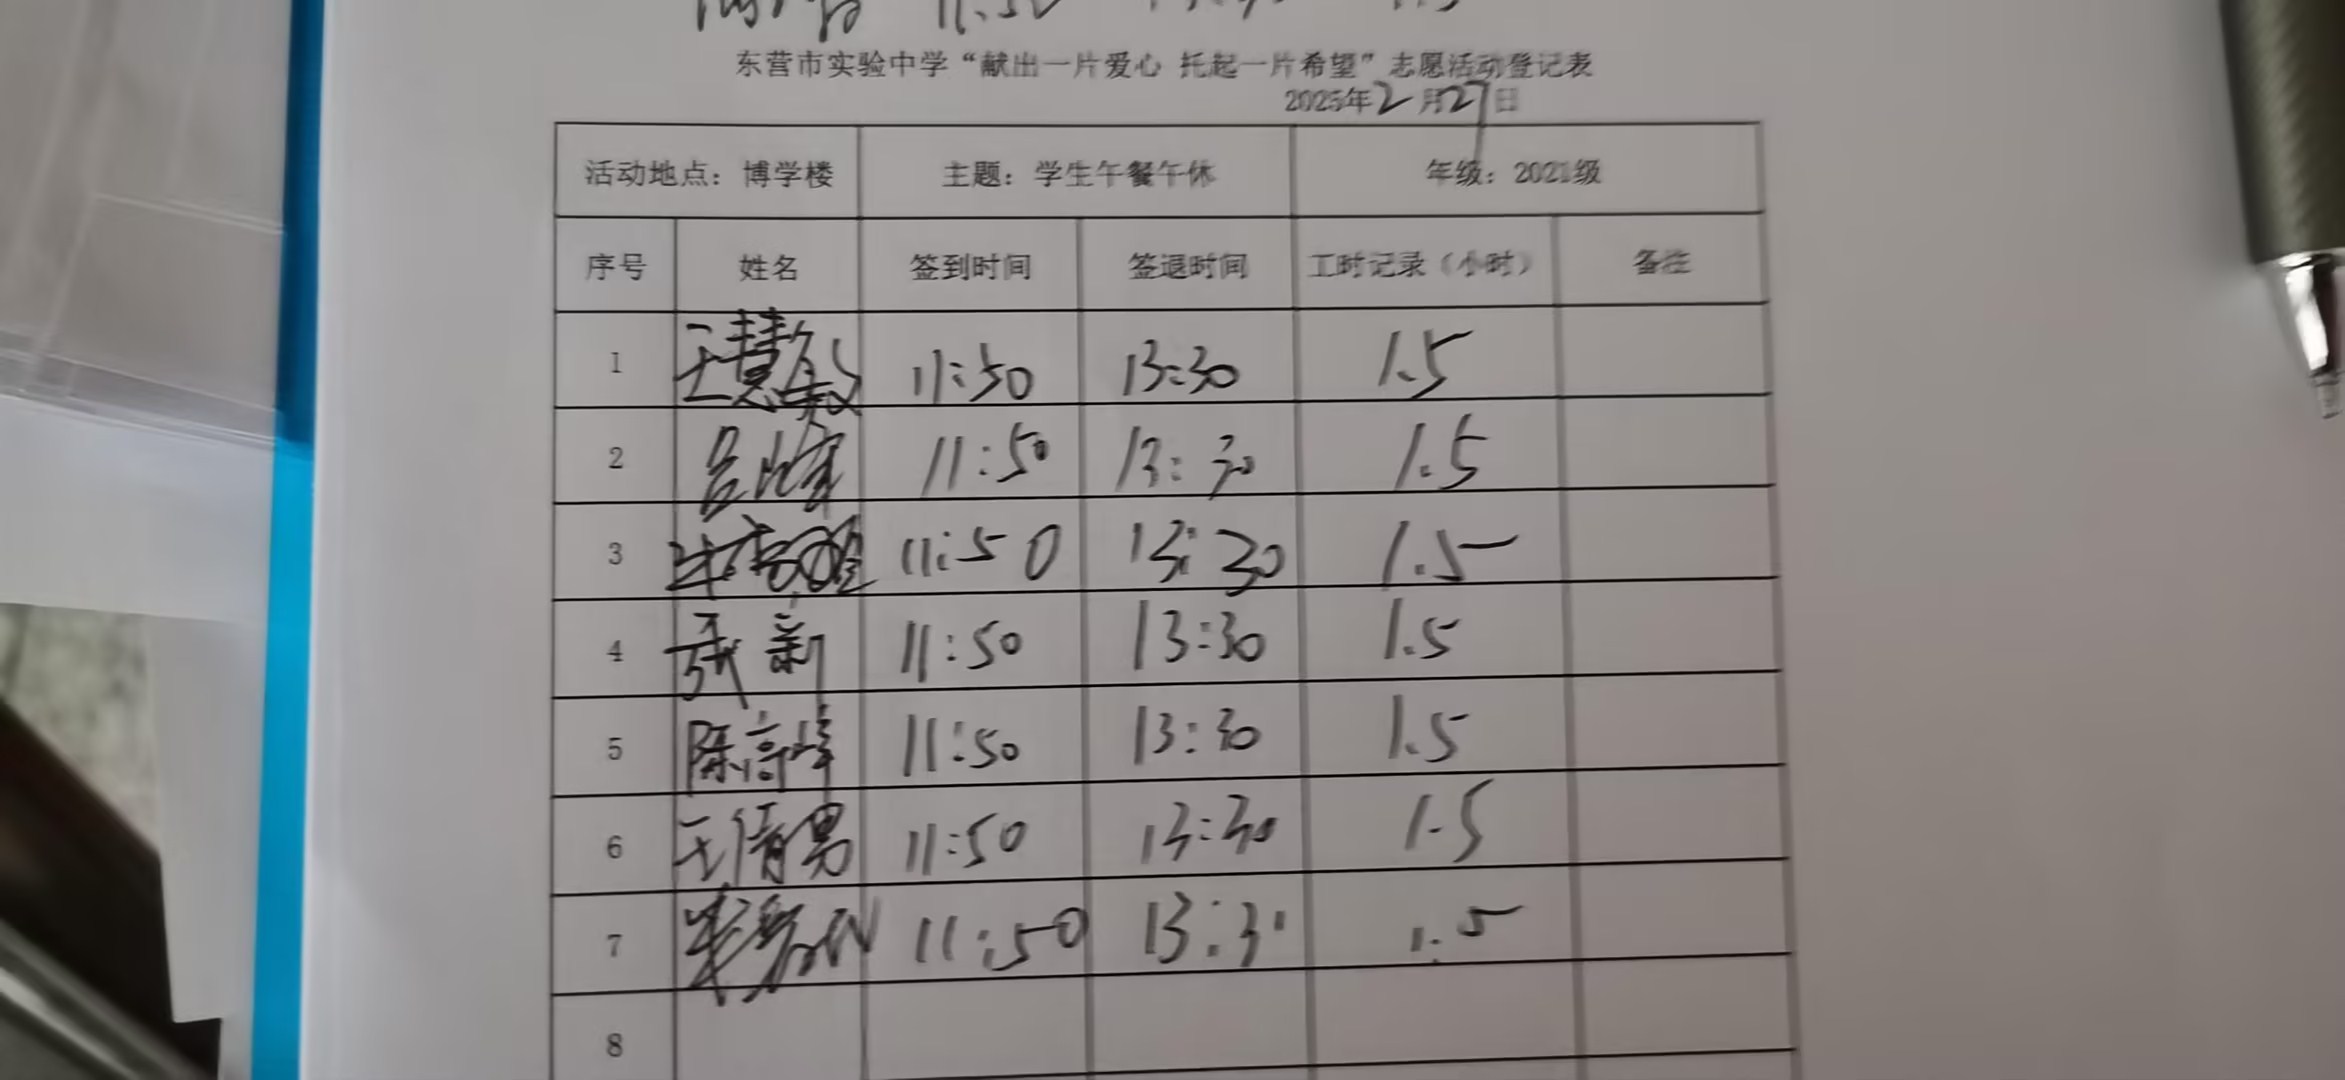 11:50
东营市实验中学“献出一片爱心 托起一片希望”志愿活动登记表
2025年2月27日
活动地点：博学楼 主题：学生午餐午休 年级：2021级
序号 姓名 签到时间 签退时间 工时记录（小时） 备注
1 王慧敏 11:50 13:30 1.5
2 11:50 13:30 1.5
3 11:50 13:30 1.5
4 张新 11:50 13:30 1.5
5 陈高峰 11:50 13:30 1.5
6 王倩男 11:50 13:30 1.5
7 11:50 13:30 1.5
8